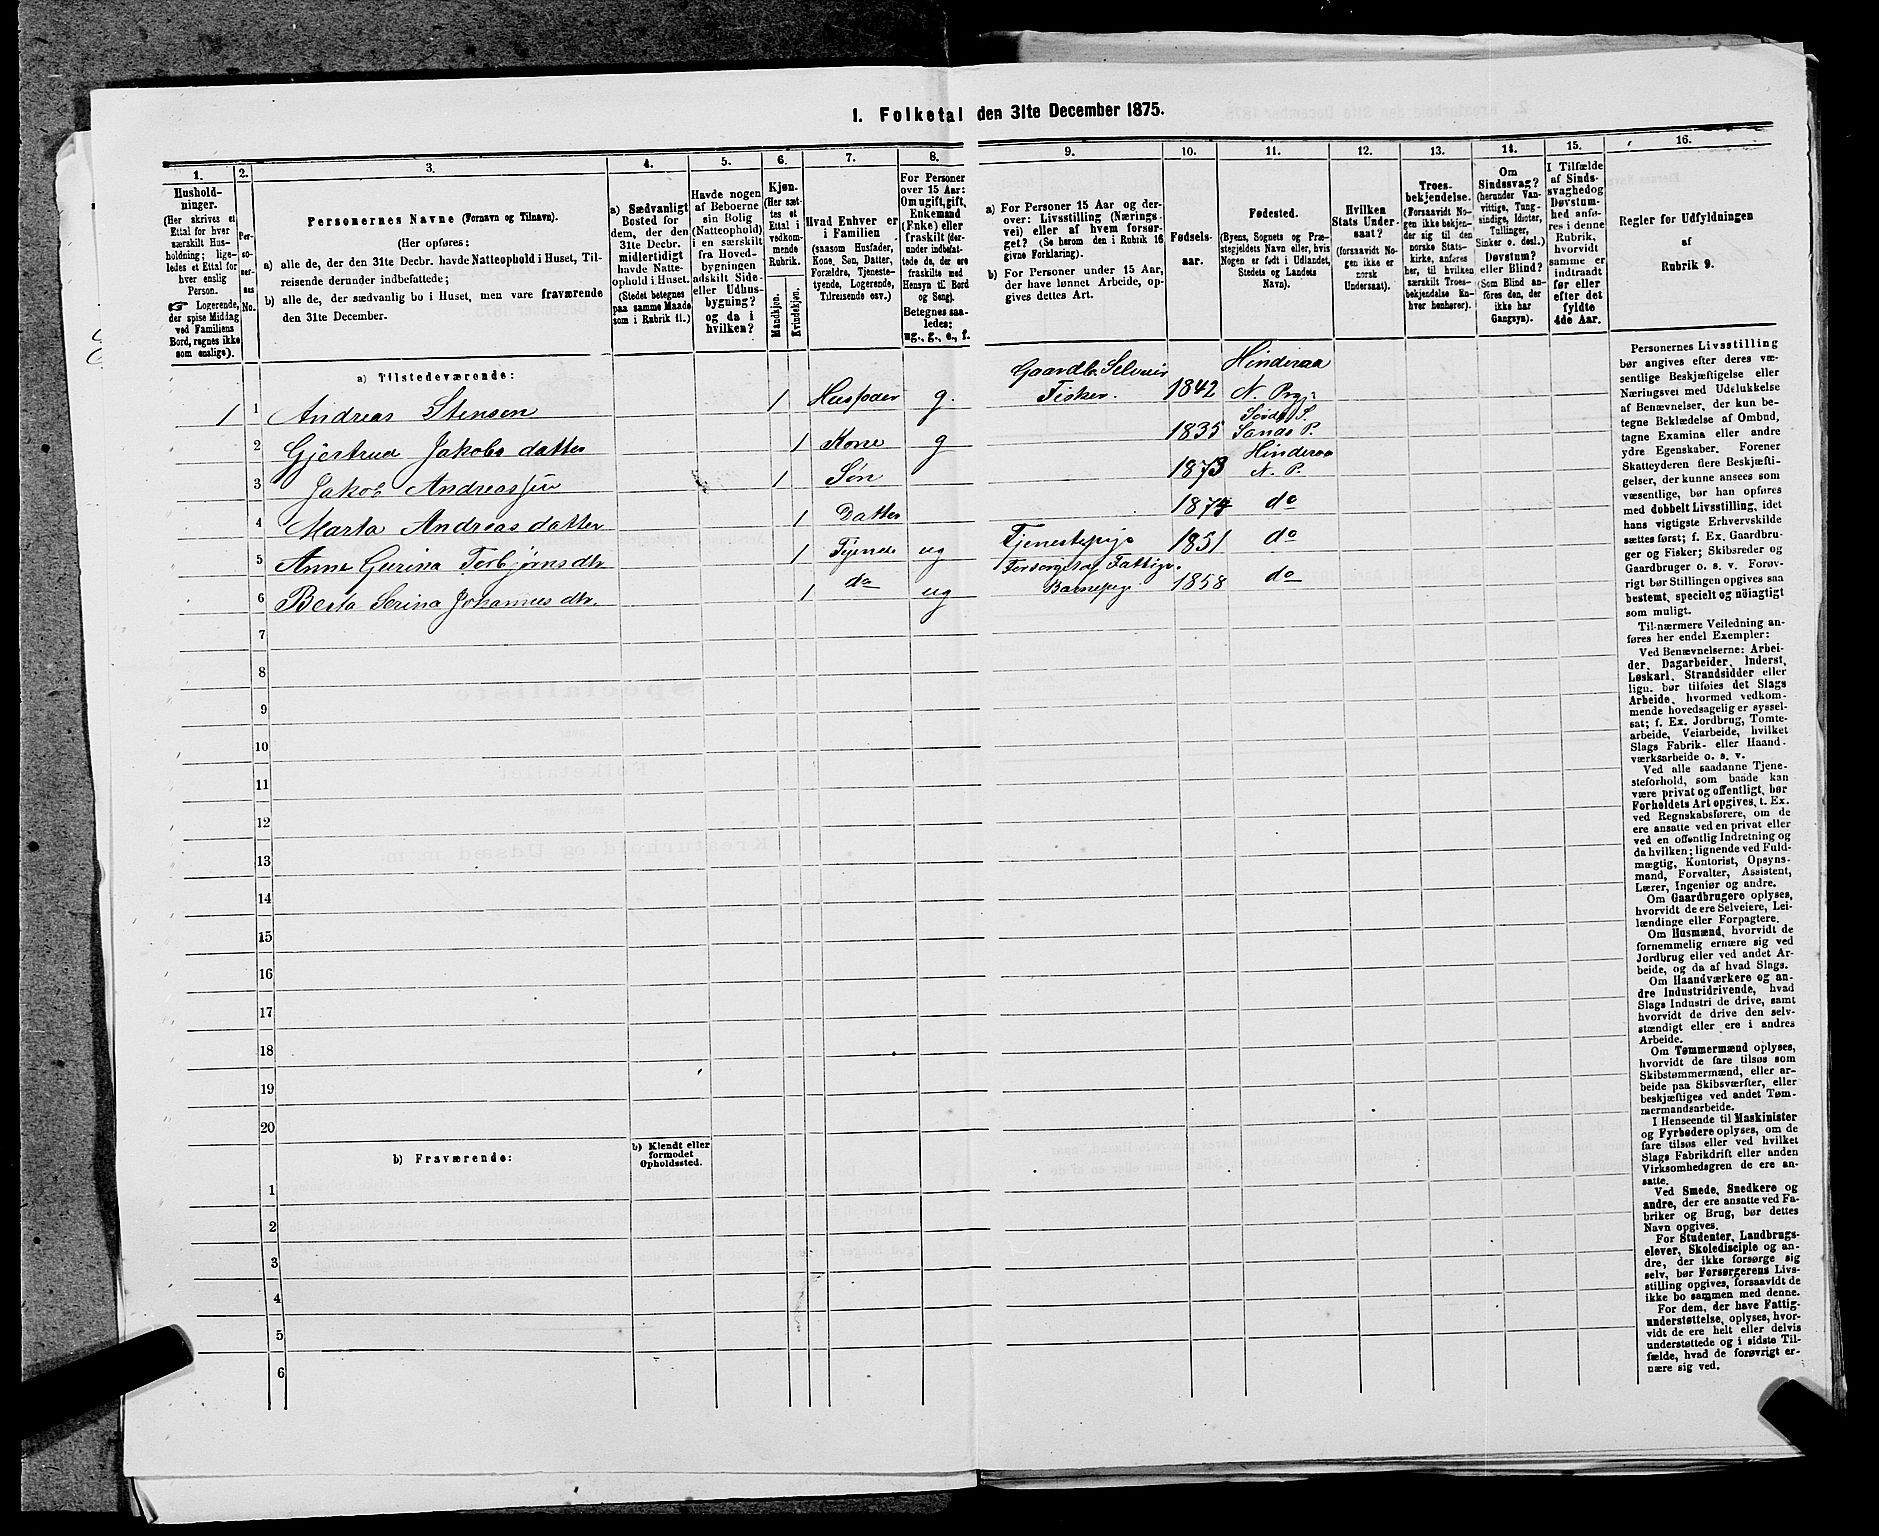 1. Folketal den 31te December 1875.
1.
2.
3.
4.
5.
6.
7.
8.
9.
10.
11.
12.
13.
14.
15.
16.
Hushold-
ninger.
(Her skrives et
Ettal for hver
særskilt Hus-
holdning; lige-
ledes et Ettal for
hver enslig
Person.
☞ Logerende,
der spise Middag
ved Familiens
Bord, regnes ikke
som enslige).
Per-
so-
ner-
nes
No.
Personernes Navne (Fornavn og Tilnavn).
(Her opføres:
a) alle de, der den 31te Decbr. havde Natteophold i Huset, Til-
reisende derunder indbefattede;
b) alle de, der sædvanlig bo i Huset, men vare fraværende
den 31te December.
a) Sædvanligt
Bosted for
dem, der den
31te Decbr.
midlertidigt
havde Natte-
ophold i Huset.
(Stedet betegnes
paa samme Maade
som i Rubrik 11.)
Havde nogen
af Beboerne
sin Bolig
(Natteophold)
i en særskilt
fra Hoved-
bygningen
adskilt Side-
eller Udhus-
bygning?
og da i
hvilken?
Kjøn.
(Her sæt-
tes et
Ettal i
vedkom-
mende
Rubrik.
Mandkjøn.
Kvindekjøn.
Hvad Enhver er
i Familien
(saasom Husfader,
Kone, Søn, Datter,
Forældre, Tjeneste-
tyende, Logerende,
Tilreisende osv.)
For Personer
over 15 Aar:
Om ugift, gift,
Enkemand
(Enke) eller
fraskilt (der-
under indbefat-
tede de, der ere
fraskilte med
Hensyn til Bord
og Seng).
Betegnes saa-
ledes:
ug., g., e., f.
a) For Personer 15 Aar og der-
over: Livsstilling (Nærings-
vei) eller af hvem forsør-
get? (Se herom den i Rubrik 16
givne Forklaring).
b) For Personer under 15 Aar,
der have lønnet Arbeide, op-
gives dettes Art.
Fødsels-
aar.
Fødested.
(Byens, Sognets og Præ-
stegjeldets Navn eller, hvis
Nogen er født i Udlandet,
Stedets og Landets
Navn).
Hvilken
Stats Under-
saat?
(forsaavidt No-
gen ikke er
norsk
Undersaat).
Troes-
bekjendelse.
(Forsaavidt No-
gen ikke bekjen-
der sig til den
norske Stats-
kirke, anføres
her, til hvilken
særskilt Troes-
bekjendelse En-
hver henhører).
Om
Sindssvag?
(herunder Van-
vittige, Tung-
sindige, Idioter,
Tullinger,
Sinker o. desl.)
Døvstum?
eller Blind?
(Som Blind an-
føres den, der
ikke har
Gangsyn).
I Tilfælde
af Sinds-
svaghed og
Døvstum-
hed anfø-
res i denne
Rubrik,
hvorvidt
samme er
indtraadt
før eller
efter det
fyldte
4de Aar.
Regler for Udfyldningen
af
Rubrik 9.
a) Tilstedeværende:
1 1 Andreas Stensen 1 Husfader g. Gaardb. Selveier Fisker. 1842 Hinderaa N. Prgj.
2 Gjertrud Jakobsdatter 1 Kone g 1835 S. Sands P.
3 Jakob Andreassen 1 Søn 1873 Hinderaa N. P.
4 Marta Andreasdatter 1 Datter 1874 do
5 Anne Gurina Torbjørnsdtr 1 Tjende ug Tjenestepige 1851 do
6 Berta Serina Johannesdtr. 1 do ug Forsørges af Fattigv. Barnepige 1858 do
7
8
9
10
11
12
13
14
15
16
17
18
19
20
b) Fraværende:
b) Kjendt eller
formodet
Opholdssted.
1
2
3
4
5
6
Personernes Livsstilling
bør angives efter deres væ-
sentlige Beskjæftigelse eller
Næringsvei med Udelukkelse
af Benævnelser, der kun be-
tegne Beklædelse af Ombud,
tagne Examina eller andre
ydre Egenskaber. Forener
Skatteyderen flere Beskjæfti-
gelser, der kunne ansees som
væsentlige, bør han opføres
med dobbelt Livsstilling, idet
hans vigtigste Erhvervskilde
sættes først; f. Ex. Gaardbru-
ger og Fisker; Skibsreder og
Gaardbruger o. s. v. Forøv-
rigt bør Stillingen opgives saa
bestemt, specielt og nöiagtigt
som muligt.
Til nærmere Veiledning an-
føres her endel Exempler:
Ved Benævnelserne: Arbei-
der, Dagarbeider, Inderst,
Løskarl, Strandsidder eller
lign. bør tilføies det Slags
Arbeide, hvormed vedkom-
mende hovedsagelig er syssel-
sat; f. Ex. Jordbrug, Tomte-
arbeide, Veiarbeide, hvilket
Slags Fabrik- eller Haand-
værksarbeide o. s. v.
Ved alle saadanne Tjene-
steforhold, som baade kan
være privat og offentligt, bør
Forholdets Art opgives, t. Ex.
ved Regnskabsførere, om de
ere ansatte ved en privat eller
ved en offentlig Indretning og
da hvilken; lignende ved Fuld-
mægtig, Kontorist, Opsyns-
mand, Forvalter, Assistent,
Lærer, Ingeniør og andre.
Om Gaardbrugere oplyses,
hvorvidt de ere Selveiere, Lei-
lændinge eller Forpagtere.
Om Husmænd, hvorvidt de
fornemmelig ernære sig ved
Jordbrug eller ved andet Ar-
beide, og da af hvad Slags.
Om Haandværkere og an-
dre Industridrivende, hvad
Slags Industri de drive, samt
hvorvidt de drive den selv-
stændigt eller ere i andres
Arbeide.
Om Tømmermænd oplyses,
hvorvidt de fare tilsøs som
Skibstømmermænd, eller ar-
beide paa Skibsværfter, eller
beskjæftiges ved andet Tøm-
mermandsarbeide.
I Henseende til Maskinister
og Fyrbødere oplyses, om de
fare tilsøs eller ved hvilket
Slags Fabrikdrift eller anden
Virksomhedsgren de ere an-
satte.
Ved Smede, Snedkere og
andre, der ere ansatte ved Fa-
briker og Brug, bør dettes
Navn opgives.
For Studenter, Landbrugs-
elever, Skoledisciple og an-
dre, der ikke forsørge sig
selv, bør Forsørgerens Livs-
stilling opgives, forsaavidt de
ikke bo sammen med denne.
For dem, der have Fattig-
understøttelse, oplyses, hvor-
vidt de ere helt eller delvis
understøttede og i sidste Til-
fælde, hvad de forøvrigt er-
nære sig ved.